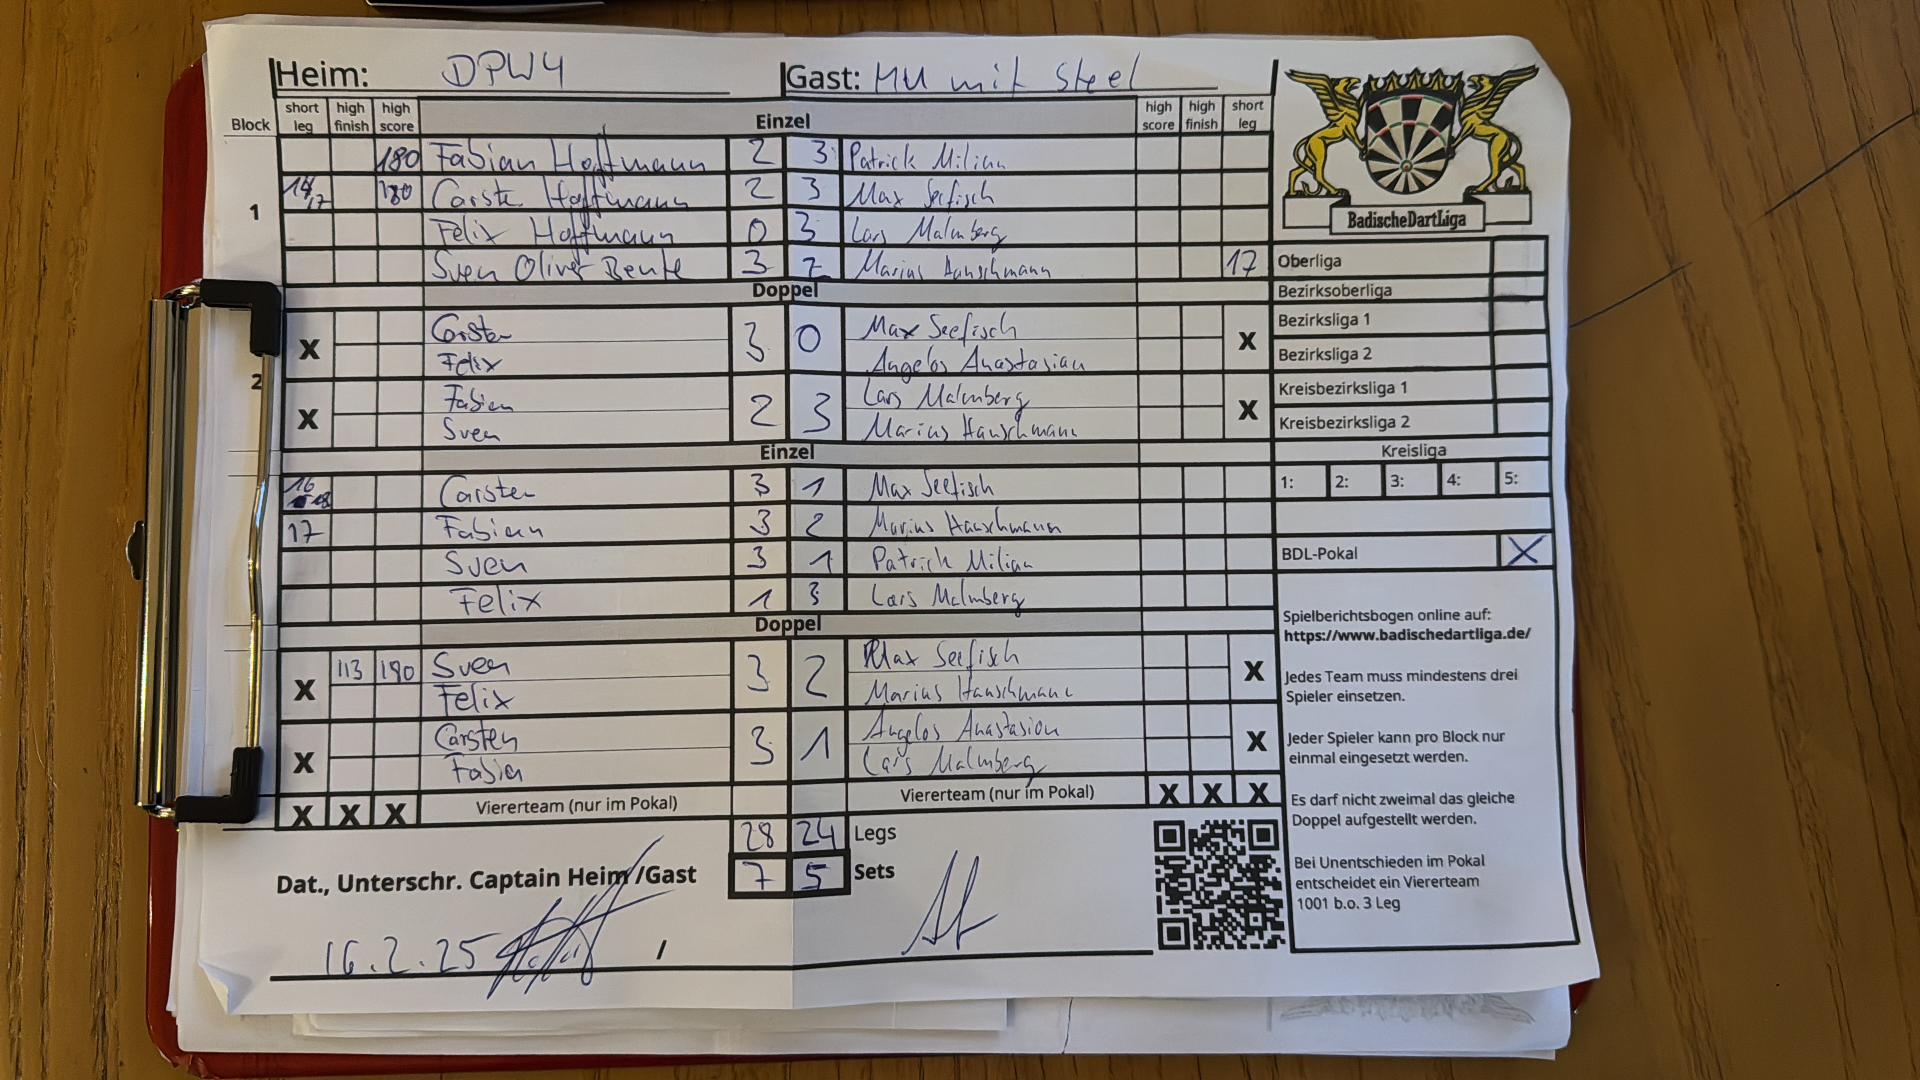 Heim: DPW4 Gast: MU mit Steel
Block short leg high finish high score Einzel high score high finish short leg
180 Fabian Hoffmann 2 3 Patrick Milian
1 14/17 180 Carsten Hoffmann 2 3 Max Seefisch
Felix Hoffmann 0 3 Lars Malmberg
Sven Oliver Bente 3 2 Marius Hanschmann 17
Doppel
X Carsten 3 0 Max Seefisch X
Felix Angelos Anastasian
2
X Fabian 2 3 Lars Malmberg X
Sven Marius Hanschmann
Einzel
16 18 Carsten 3 1 Max Seefisch
17 Fabian 3 2 Marius Hanschmann
Sven 3 1 Patrick Milian
Felix 1 3 Lars Malmberg
Doppel
X 113 180 Sven 3 2 Max Seefisch X
Felix Marius Hanschmann
X Carsten 3 1 Angelos Anastasion X
Fabian Lars Malmberg
X X X Viererteam (nur im Pokal) Viererteam (nur im Pokal) X X X
28 24 Legs
7 5 Sets
Dat., Unterschr. Captain Heim /Gast
16.2.25 /
BadischeDartLiga
Oberliga
Bezirksoberliga
Bezirksliga 1
Bezirksliga 2
Kreisbezirksliga 1
Kreisbezirksliga 2
Kreisliga
1: 2: 3: 4: 5:
BDL-Pokal X
Spielberichtsbogen online auf:
https://www.badischedartliga.de/
Jedes Team muss mindestens drei
Spieler einsetzen.
Jeder Spieler kann pro Block nur
einmal eingesetzt werden.
Es darf nicht zweimal das gleiche
Doppel aufgestellt werden.
Bei Unentschieden im Pokal
entscheidet ein Viererteam
1001 b.o. 3 Leg